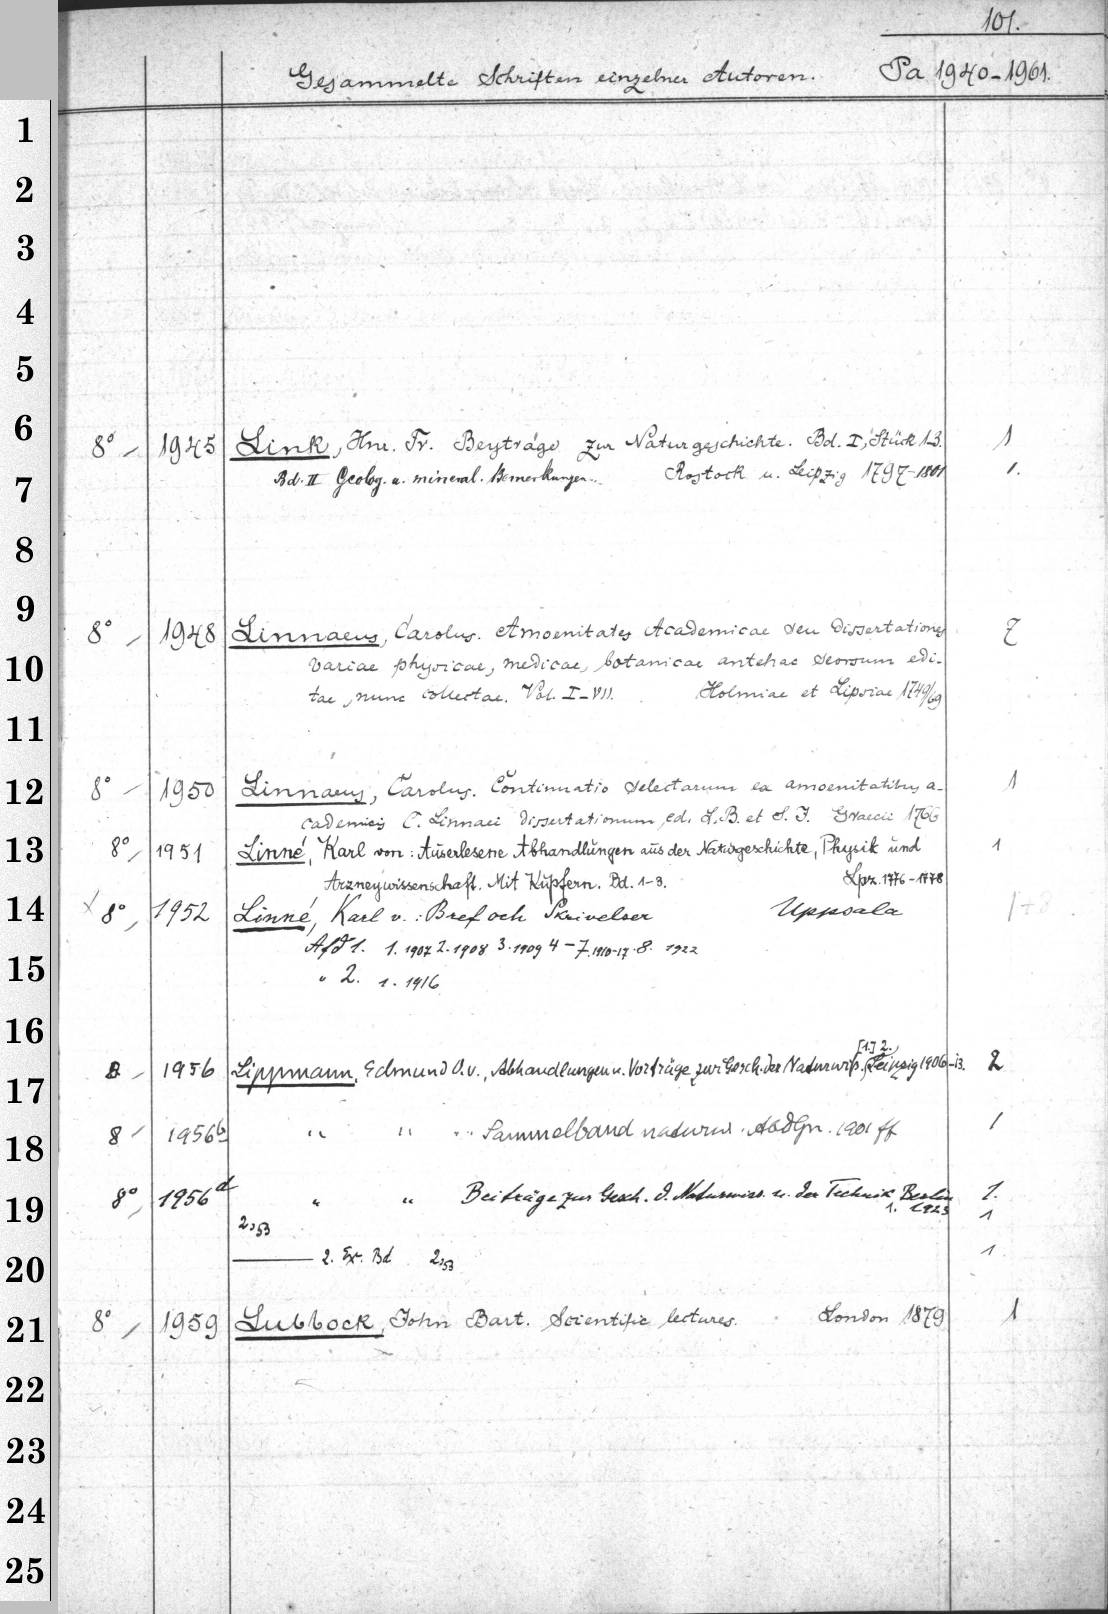 101.
Gesammelte Schriften einzelner Autoren. Pa 1940-1961.
1
2
3
4
5
6
8° 1945 Link, Hnr. Fr. Beyträge zur Naturgeschichte. Bd. I, Stück 1-3. 1
7
Bd. II Geolog. u. mineral. Bemerkungen.. Rostock u. Leipzig 1797-1801 1.
8
9
8° 1948 Linnaeus, Carolus. Amoenitates Academicae seu dissertationes 7
10
variae physicae, medicae, botanicae antehac seorsum edi-
tae, nunc collectae. Vol. I-VII. Holmiae et Lipsiae 1749/69
11
12
8° 1950 Linnaeus, Carolus. Continuatio selectarum ex amoenitatibus a- 1
cademicis C. Linnaei dissertationum, ed. L.B. et S.J. Graecii 1766
13
8° 1951 Linné, Karl von: Auserlesene Abhandlungen aus der Naturgeschichte, Physik und 1
Arzneywissenschaft. Mit Kupfern. Bd. 1-3. Lpz. 1776-1778
14
8° 1952 Linné, Karl v.: Bref och Skrivelser Uppsala 1+8
Afd 1. 1. 1907 2. 1908 3. 1909 4-7. 1910-17. 8. 1922
15
" 2. 1. 1916
16
[1.] 2.
8 1956 Lippmann, Edmund O. v., Abhandlungen u. Vorträge zur Gesch. der Naturwiss. Leipzig 1906-13. 2
17
18
8 1956b " " " Sammelband naturw. Abdlgn. 1901 ff 1
19
8° 1956d " " Beiträge zur Gesch. d. Naturwiss. u. der Technik Berlin 1.
1. 1923 1
2,53
20
2. Ex. Bd 2,53 1
21
8° 1959 Lubbock, John Bart. Scientific lectures. London 1879 1
22
23
24
25